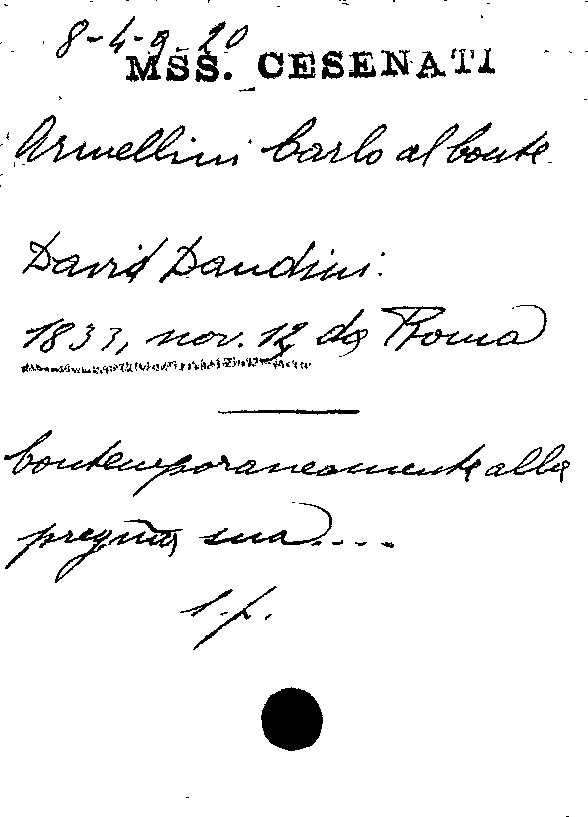 8-4-9-20
MSS. CESENATI
Armellini Carlo al Conte
David Dandini.
1833, nov. 12, da Roma
Contemporaneamente alla
pregta sua....
s.f.